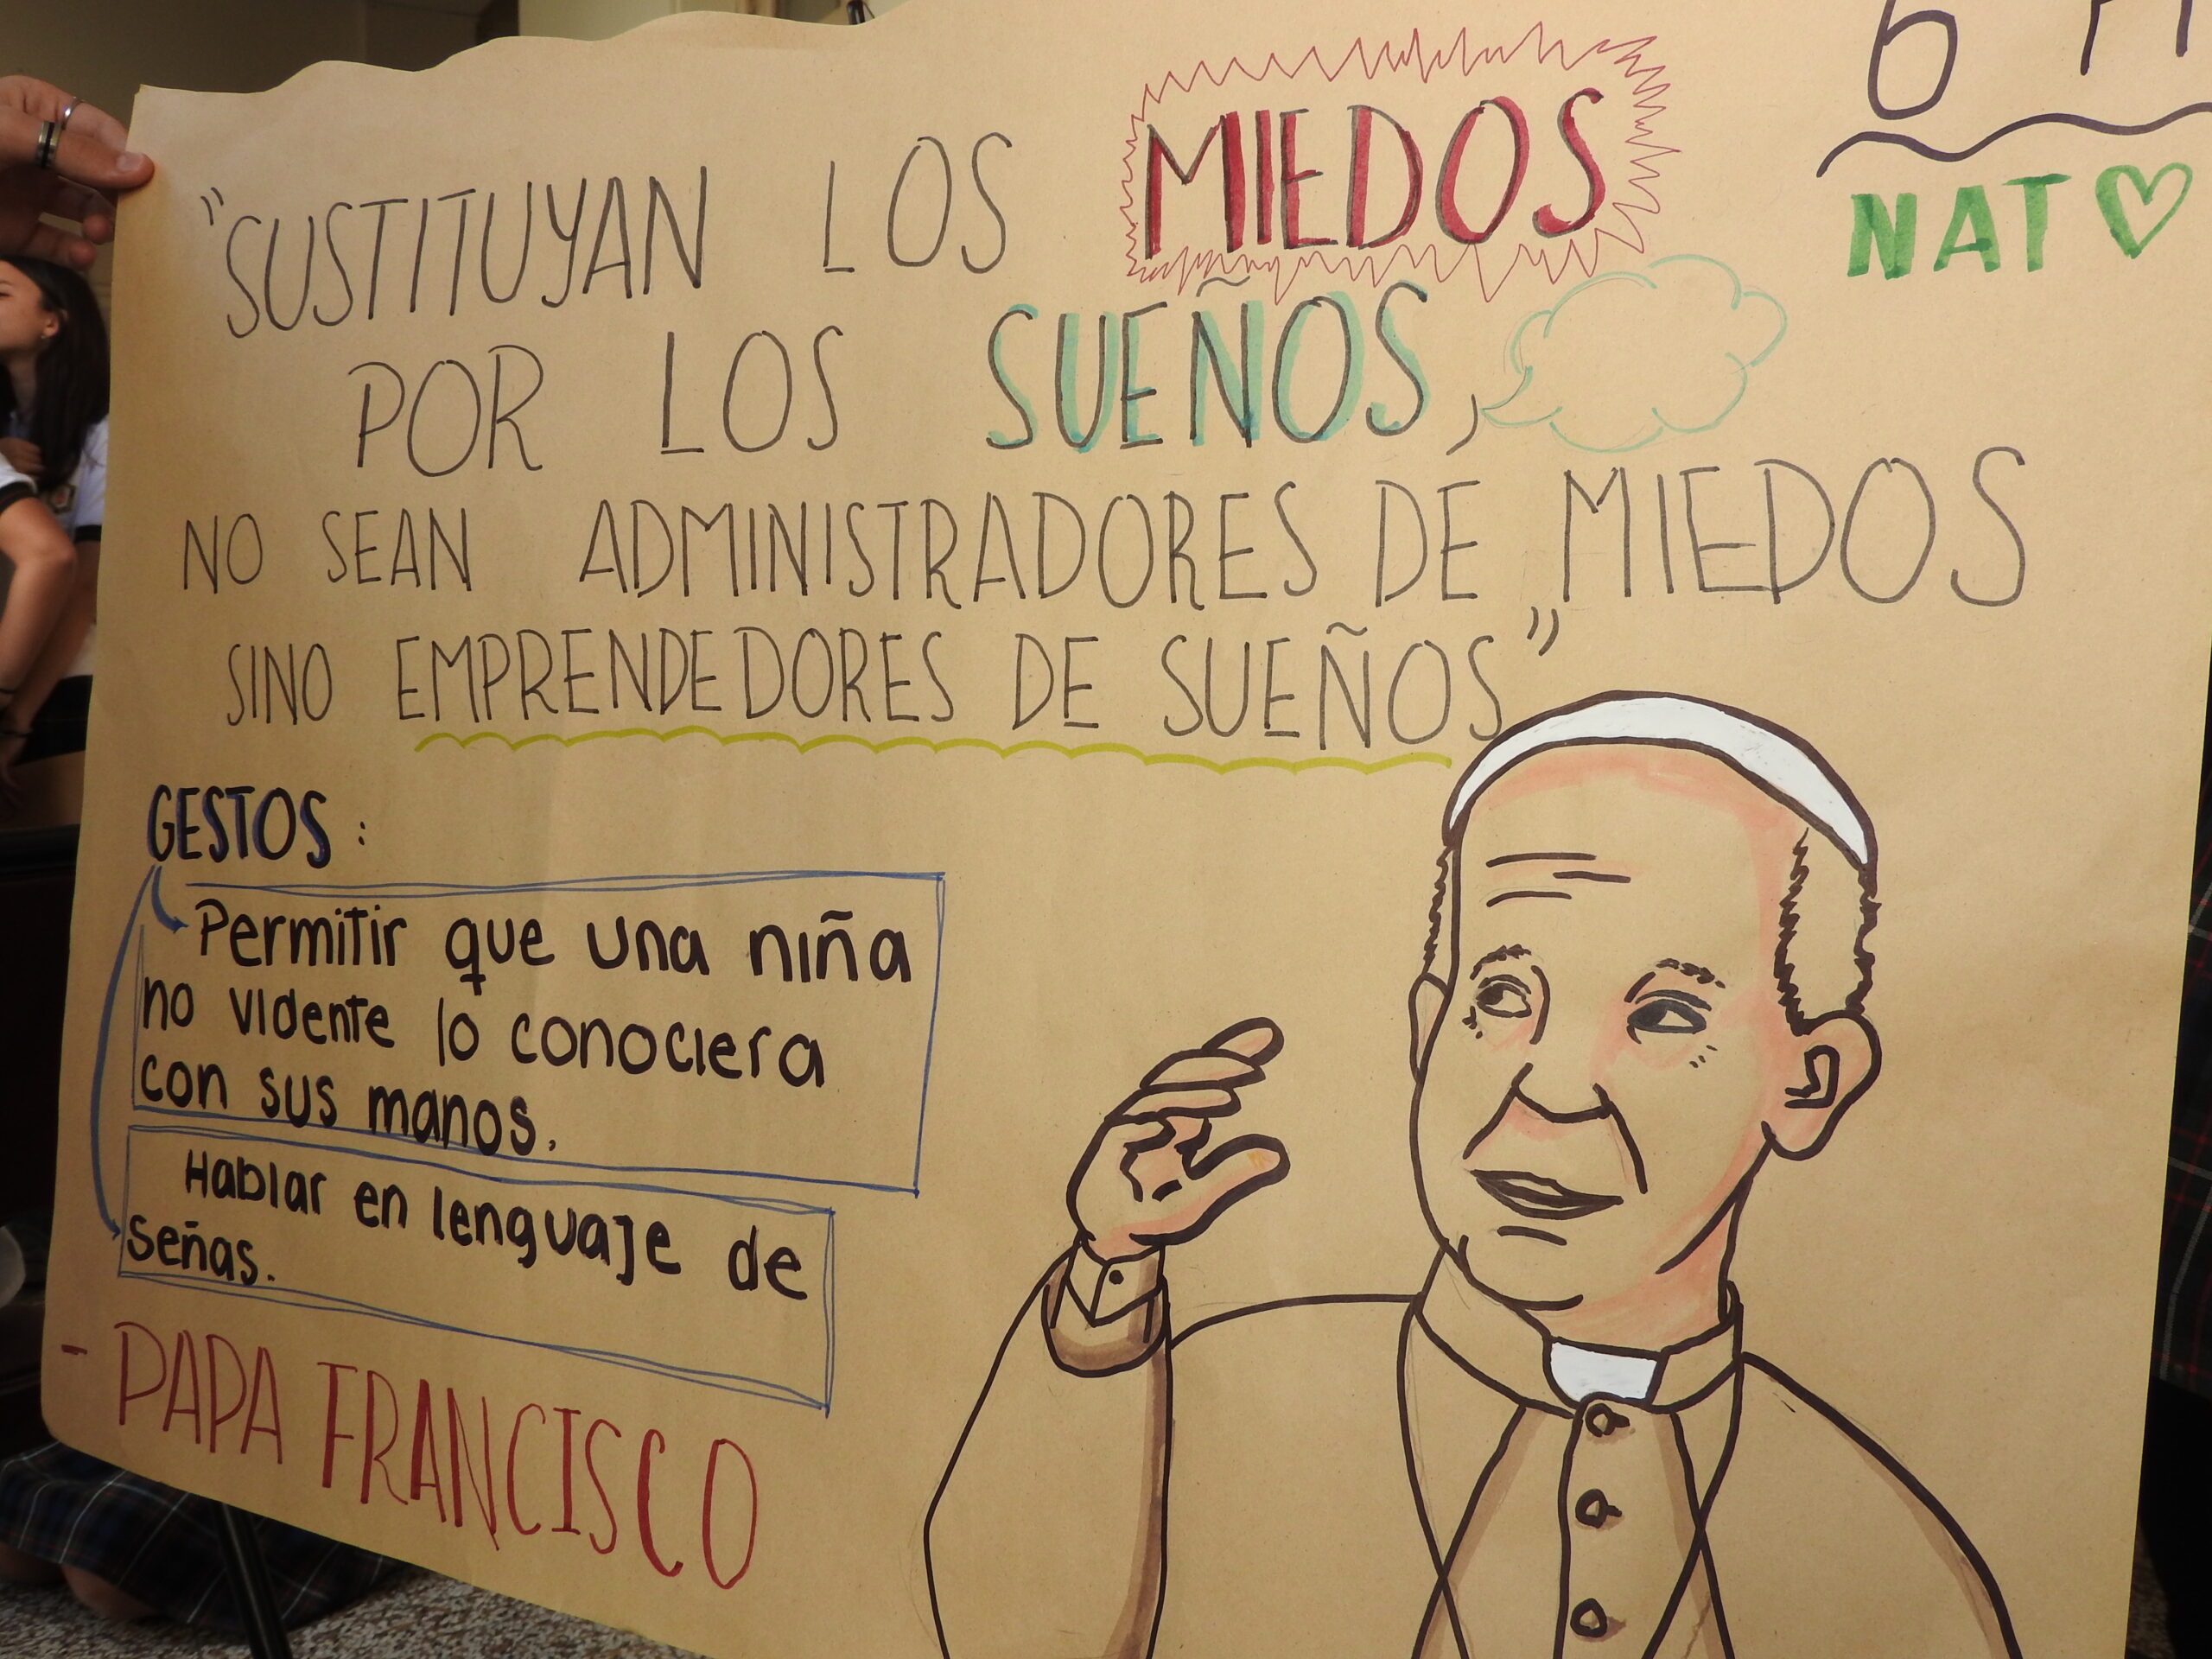 "SUSTITUYAN LOS MIEDOS
POR LOS SUEÑOS,
NO SEAN ADMINISTRADORES DE MIEDOS
SINO EMPRENDEDORES DE SUEÑOS"
NAT
GESTOS:
Permitir que una niña
no vidente lo conociera
con sus manos.
Hablar en lenguaje de
señas.
- PAPA FRANCISCO